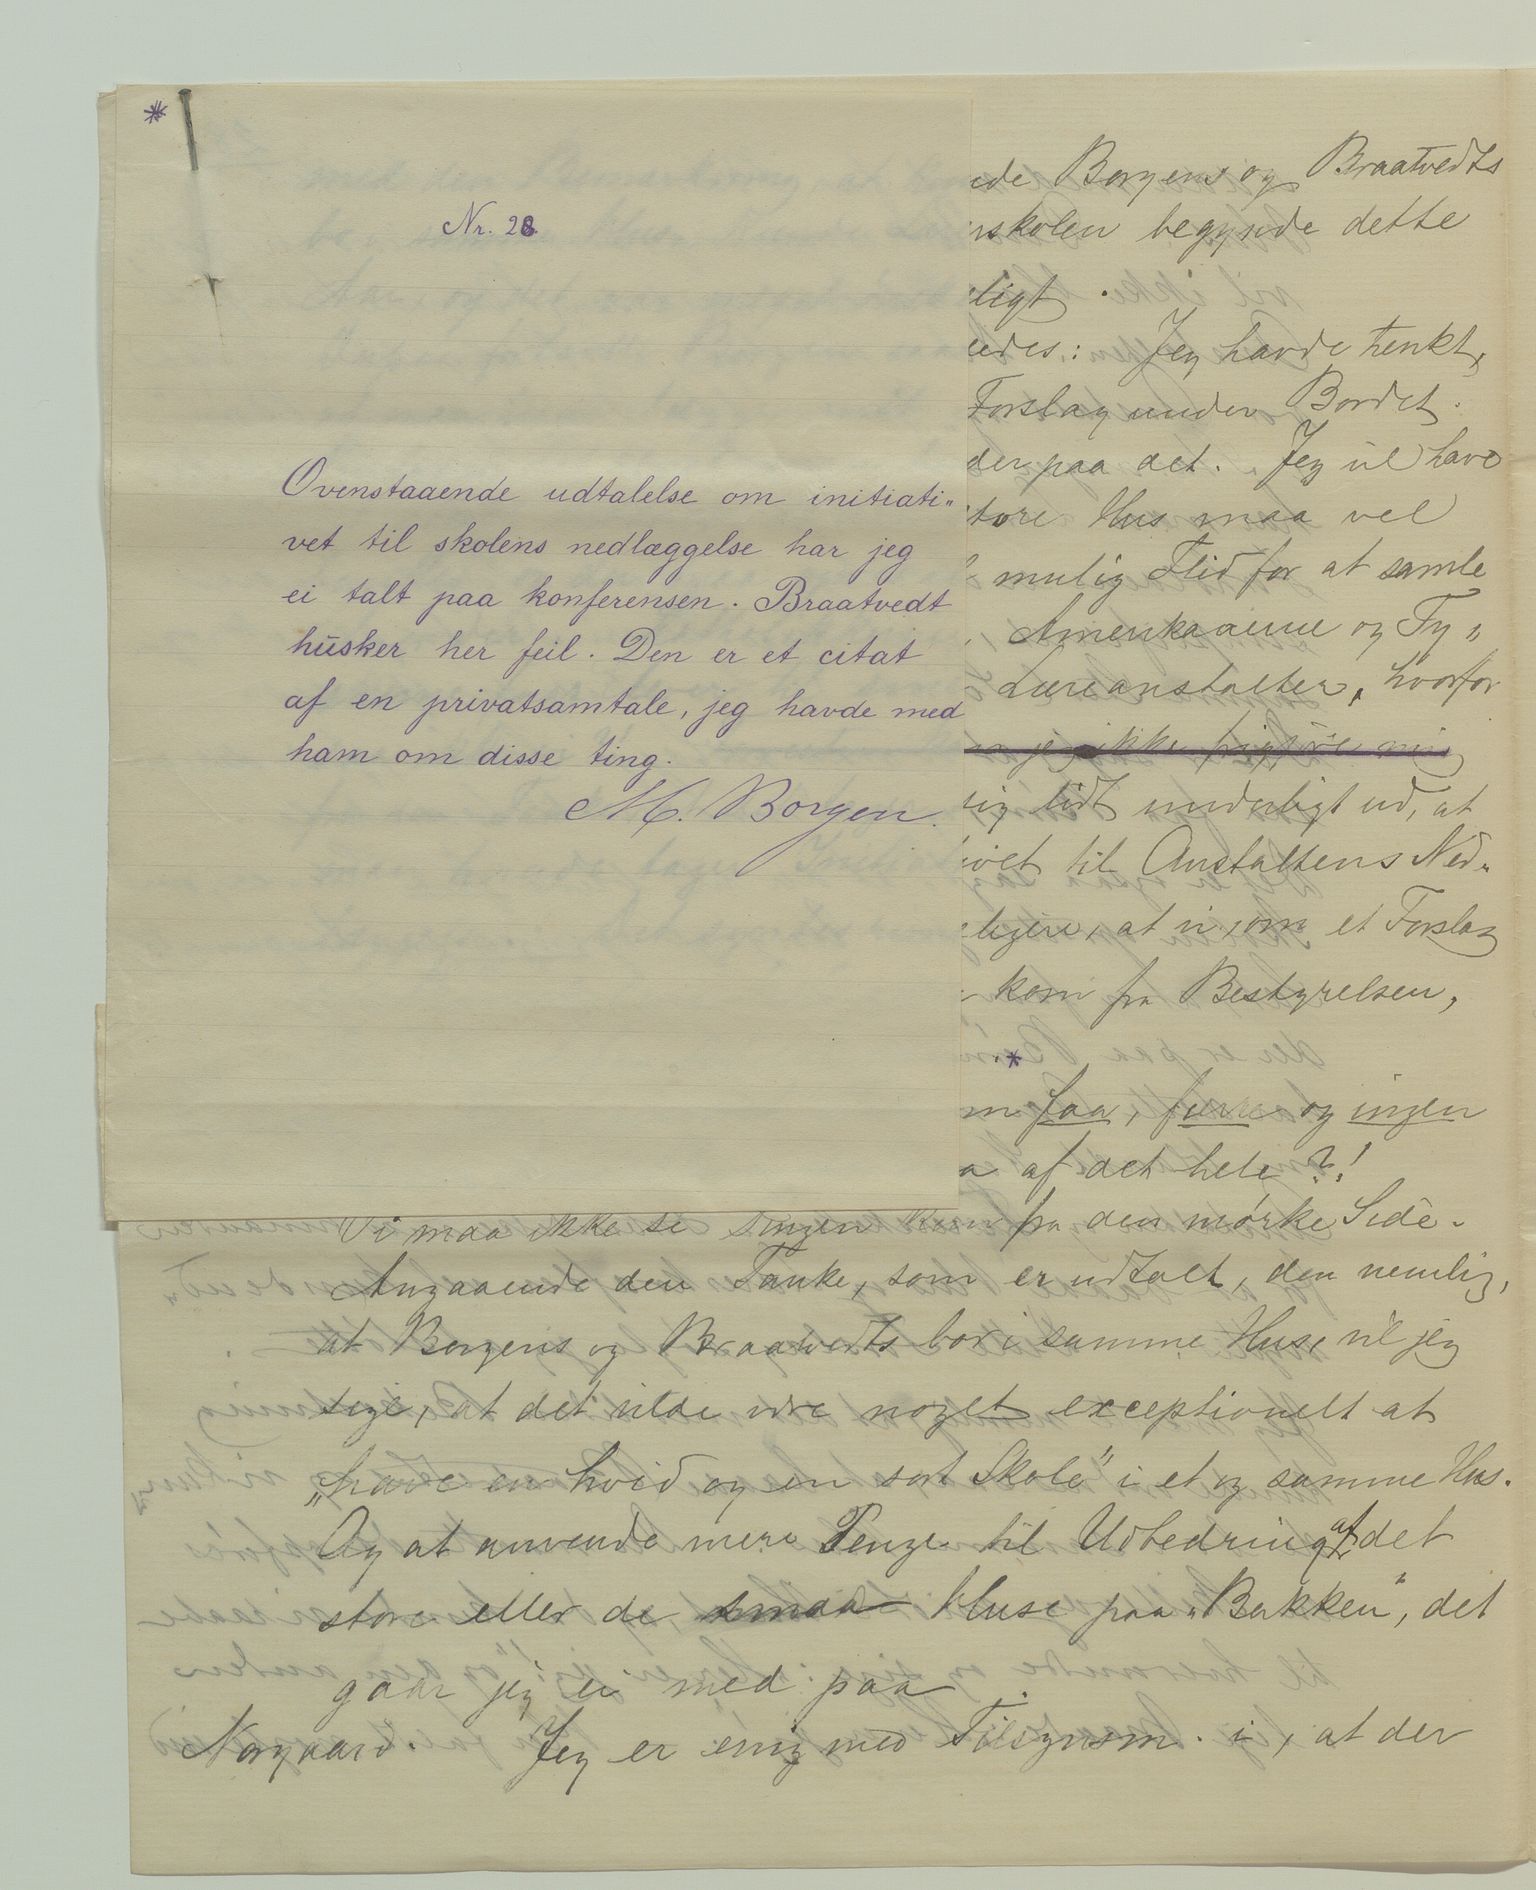 *
Nr. 28.
Ovenstaaende udtalelse om initiati„
vet til skolens nedlæggelse har jeg
ei talt paa konferensen. Braatvedt
husker her feil. Den er et citat
af en privatsamtale, jeg havde med
ham om disse ting.
M. Borgen.
ede Borgens og Braatvedts
skolen begynde dette
ligt.
edes: Jeg havde tenkt,
Forslag under Bordet.
der paa det. Jeg vil have
tore Hus maa vel
mulig Flid for at samle
Amerikaaerne og Ty„
Læreanstalter, hvorfor
jeg ikke frigjöre mig
sig lidt underligt ud, at
ivet til Anstaltens Ned„
ligere, at vi som et Forslag
kom fra Bestyrelsen,
*
m faa, færre og ingen
a af det hele?!
Vi maa ikke se kun fra den mörke Side.
Angaaende den Tanke, som er udtalt, den nemlig,
at Borgens og Braatvedts bor i samme Huse, vil jeg
sige, at det vilde vre noget exceptionelt at
„have en hvid og en sort Skole" i et og samme Hus.
Og at anvende mere Penge til Udbedring af det
store eller de smaa Huse paa „Bakken", det
gaar jeg ei med paa.
Norgaard. Jeg er enig med Tilsynsm. i, at der